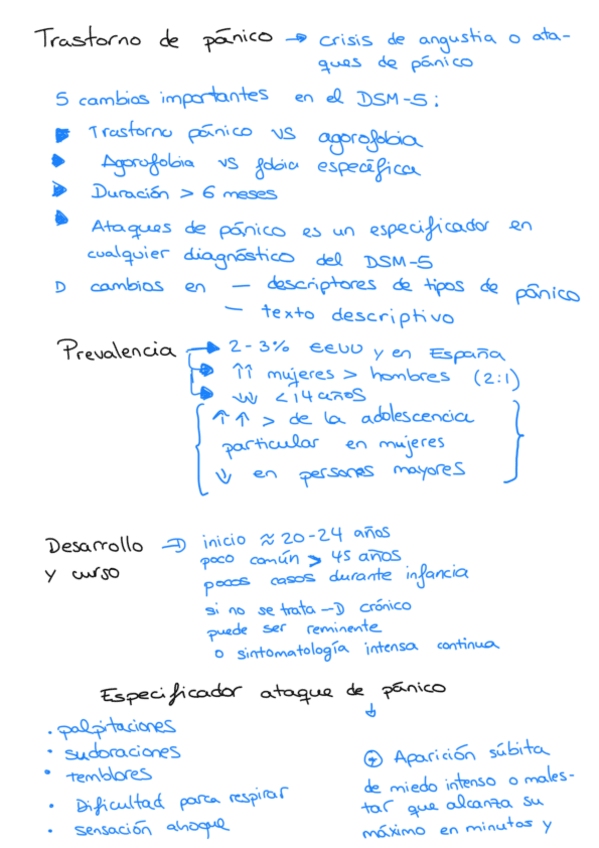 Trastorno de pánico → crisis de angustia o ata-
ques de pánico
5 cambios importantes en el DSM-5:
▶ Trastorno pánico vs agorofobia
▶ Agorofobia vs fobia específica
▶ Duración > 6 meses
▶ Ataques de pánico es un especificador en
cualquier diagnóstico del DSM-5
D cambios en — descriptores de tipos de pánico
— texto descriptivo
Prevalencia → 2-3% EEUU y en España
→ ↑↑ mujeres > hombres (2:1)
→ ↓↓ < 14 años
↑↑ > de la adolescencia
particular en mujeres
↓ en personas mayores
Desarrollo → inicio ≈ 20-24 años
y curso
poco común > 45 años
pocos casos durante infancia
si no se trata → crónico
puede ser reminente
o sintomatología intensa continua
Especificador ataque de pánico
↓
· palpitaciones
· sudoraciones
· temblores
· Dificultad para respirar
· sensación ahoque
⊕ Aparición súbita
de miedo intenso o males-
tar que alcanza su
máximo en minutos y